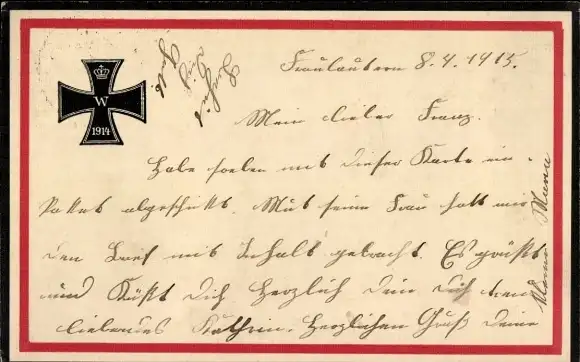 W
1914
Fraulautern 8.4.1915.
Mein lieber Franz.
Habe soeben mit dieser Karte ein
Paket abgeschikt. seine Frau hatt mir
den Brief mit Inhalt gebracht. Es grüßt
und Küßt Dich Herzlich Deine Dich treu
liebendes Kathrin. Herzlichen Gruß Deine